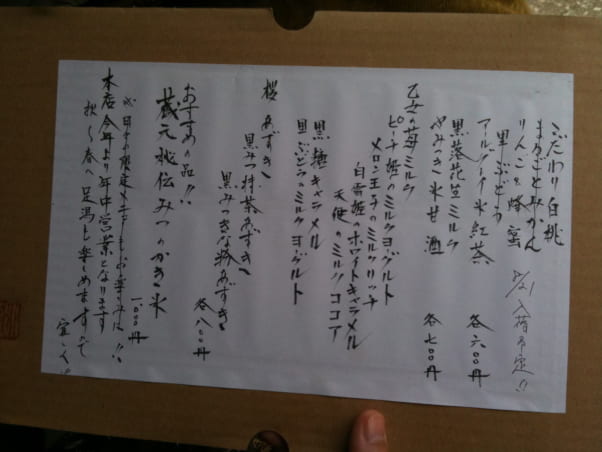 こだわり白桃
まるごとみかん
りんごと蜂蜜 入荷予定!!
黒ぶどう
アールグレイ氷紅茶 各六〇〇円
黒落花生ミルク
やみつき氷甘酒 各七〇〇円
乙女の苺ミルク
ピーチ姫のミルクヨーグルト
メロン王子のミルクリッチ
白雪姫のホワイトキャラメル
天使のミルクココア
黒糖キャラメル
黒ぶどうのミルクヨーグルト
桜あずき
黒みつ抹茶あずき
黒みつきな粉あずき 各八〇〇円
おすすめの品!!
蔵元秘伝みつのかき氷 一〇〇〇円
日干の限定メニューもお楽しみに!!
本店今年より年中営業となります
秋〜春へ足湯も楽しめますので
宜しく